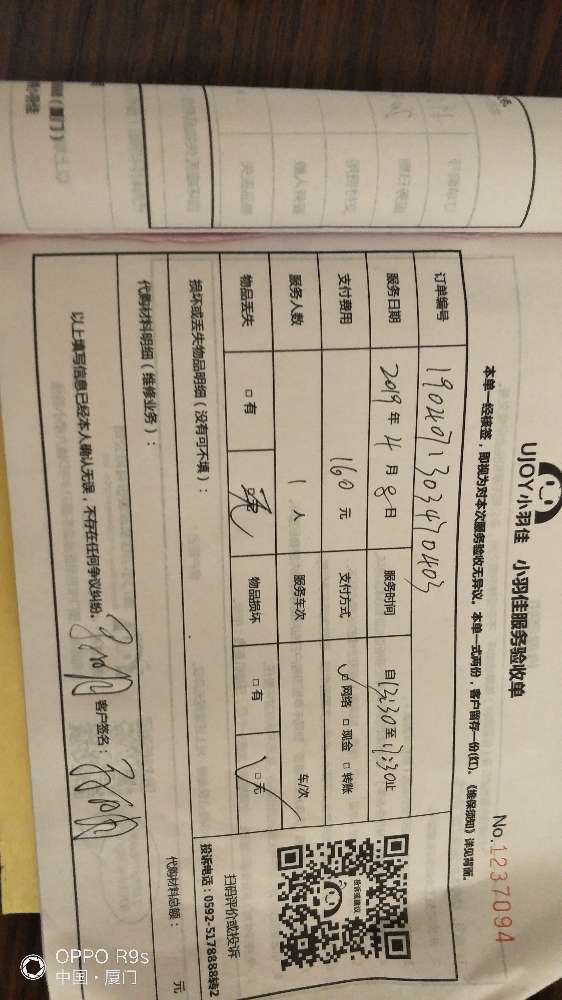 UJOY小羽佳 小羽佳服务验收单
No.1237094
本单一经接签，即视为对本次服务验收无异议。本单一式两份，客户留存一份(红)。《维保须知》详见背面。
订单编号
服务日期 2019年4月8日 服务时间
支付费用 160元 支付方式 □网络 □现金 □转账
服务人数 1人 服务车次 车/次
物品丢失 □有 □无 物品损坏 □有 □无
扫码评价或投诉
投诉电话：0592-5178888转2
损坏或丢失物品明细（没有可不填）：
代购材料明细（维修业务）：
代购材料总额： 元
以上填写信息已经本人确认无误，不存在任何争议纠纷。 客户签名：
OPPO R9s
中国·厦门